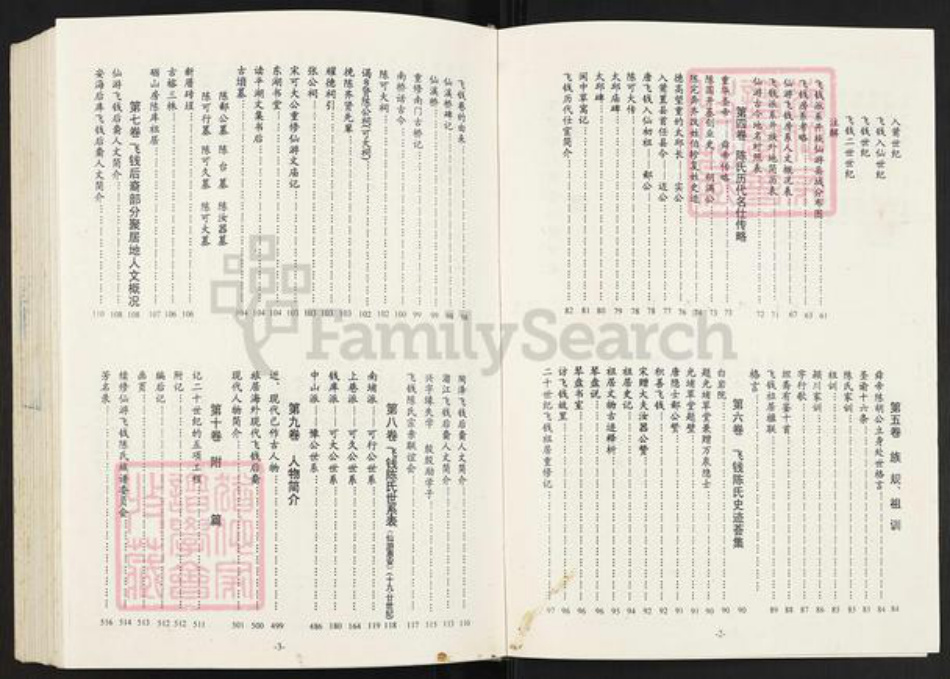 入莆世纪
飞钱入仙世纪
飞钱世纪
飞钱二世世纪
注解
飞钱派系开族仙游县城分布图 61
飞钱房系考略 63
仙游飞钱房系人文概况表 67
飞钱派系开族外地简历表 71
仙游古今地名对照表 72
第四卷 陈氏历代名仕传略
重华圣帝 舜帝传略 73
陈国开基创业史 胡满公 73
陈完奔齐改姓伯轸复姓史迹 74
德高望重的太邱长 实公 76
入莆置县首任县令 迈公 77
唐飞钱入仙初祖 郝公 78
陈可大传 78
太邱庙碑 79
太邱碑 80
闽中草寓记 81
飞钱历代仕宦简介 82
第五卷 族规、祖训
舜帝陈胡公立身处世格言 84
圣谕十六条 83
陈氏家训 83
祖训 85
颍川家训 86
字行歌 87
班斋有鉴十首 88
飞钱祖居楹联 89
格言
第六卷 飞钱陈氏史迹荟集
白岩院 90
题允堵草堂兼赠万泉隐士 90
允堵草堂题壁 91
唐隐士郝公赞 91
积善飞钱 92
宋赠大夫汝器公赞 92
祖居史记 94
祖居文物古迹释析 95
琴盘说 96
琴盘书室 96
访飞钱故里 96
二十世纪飞钱祖居重修记 97
-2-
飞钱巷的由来 98
仙溪桥碑记 98
仙溪桥 99
重修南门古桥记 99
南桥话古今 100
陈可大祠 102
谒乡贤陈公祠(可大祠) 102
挽陈齐贤先辈 103
耀德祠引 103
张公祠 103
宋可大公重修仙游文庙记 103
东湖书堂 104
读平湖文集书后 104
古墙墓 104
陈郝公墓 陈台墓 陈汝器墓
陈可行墓 陈可久墓 陈可大墓
新厝砖埕 106
古榕三株 106
砺山房陈库祖居 107
第七卷 飞钱后裔部分聚居地人文概况 108
仙游飞钱后裔人文简介 108
安海后库飞钱后裔人文简介 110
菊泽飞钱后裔人文简介 110
湄江飞钱后裔人文简介 113
兴学缘失学 殷殷励学子 115
飞钱陈氏宗亲联谊会 117
第八卷 飞钱陈氏世系表(仙游莆安)(十九-廿世纪) 118
南堵派——可行公世系 119
上巷派——可久公世系 164
钱库派——可大公世系 180
中山派——豫公世系 486
第九卷 人物简介
近、现代已作古人物 499
旅居海外现代飞钱后裔 500
现代人物简介 501
第十卷 附篇
记二十世纪的五项工程 511
附记 512
编后记 512
画页 513
续修仙游飞钱陈氏族谱委员会 514
芳名录 516
-3-
FamilySearch